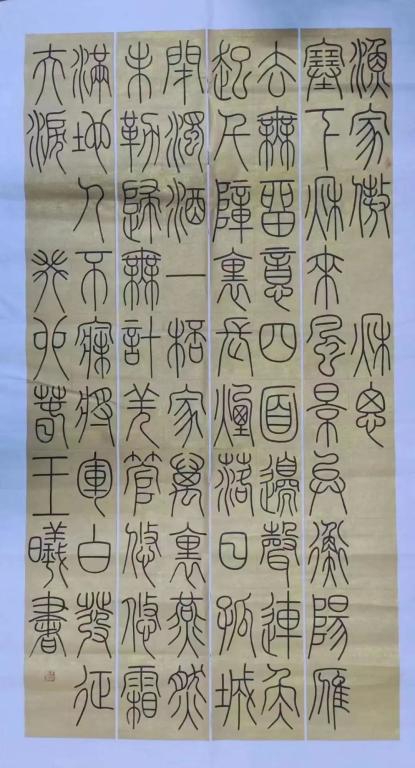 漁家傲 秋思
塞下秋來風景異衡陽雁
去無留意四面邊聲連角
起千嶂裏長煙落日孤城
閉濁酒一杯家萬裏燕然
未勒歸無計羌管悠悠霜
滿地人不寐將軍白髮征
夫淚 癸卯春王曦書